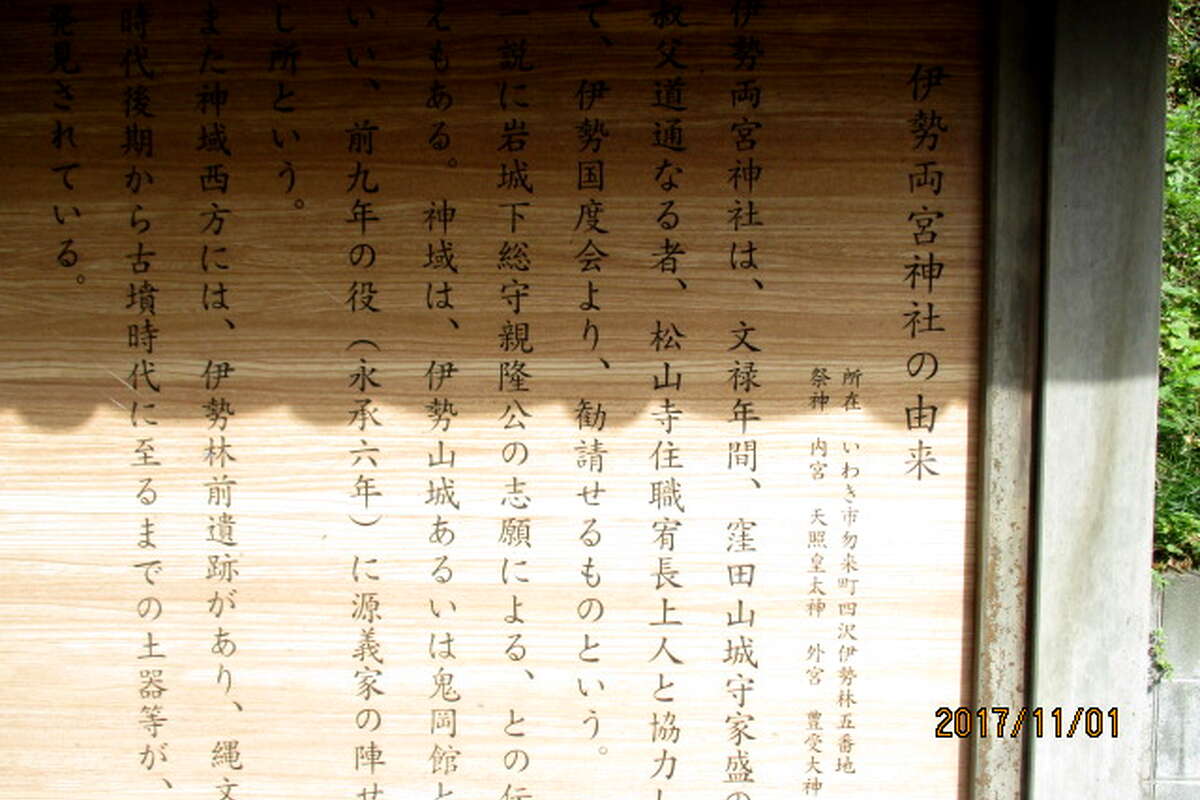 伊勢両宮神社の由来
所在 いわき市勿来町四沢伊勢林五番地
祭神 内宮 天照皇太神 外宮 豊受大神
伊勢両宮神社は、文禄年間、窪田山城守家盛の
叔父道通なる者、松山寺住職宥長上人と協力し
て、伊勢国度会より、勧請せるものという。
一説に岩城下総守親隆公の志願による、との伝
えもある。神域は、伊勢山城あるいは鬼岡館と
いい、前九年の役(永承六年)に源義家の陣せ
し所という。
また神域西方には、伊勢林前遺跡があり、縄文
時代後期から古墳時代に至るまでの土器等が、
発見されている。
2017/11/01